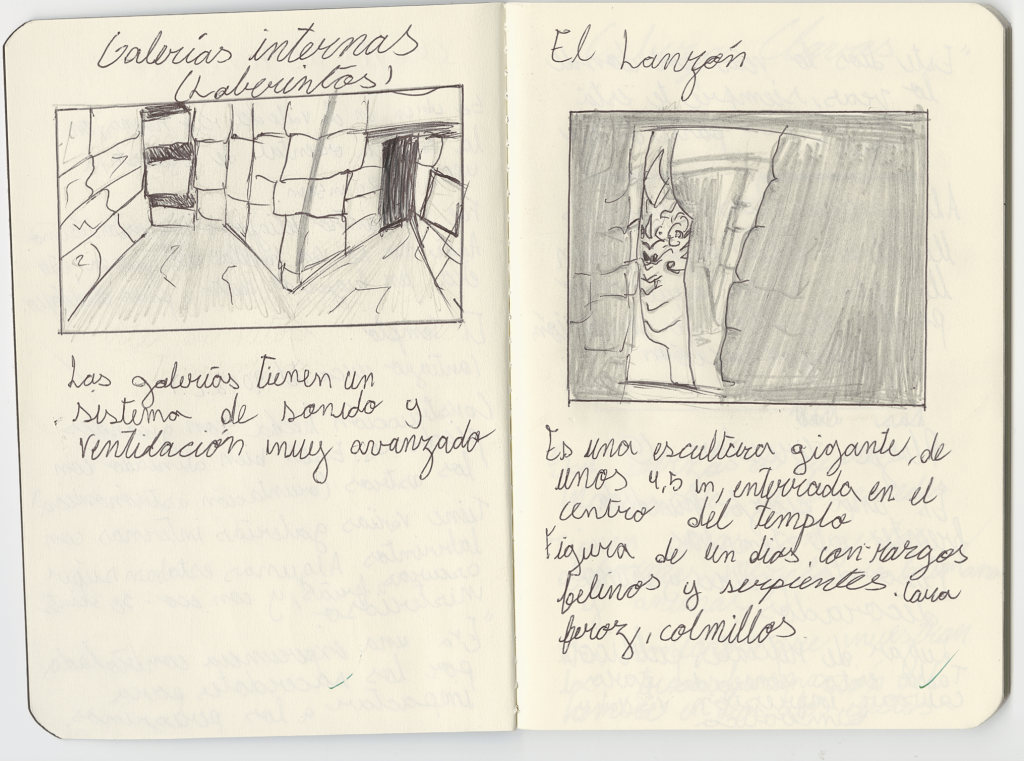 Galerías internas
(Laberintos)
Las galerías tienen un
sistema de sonido y
ventilación muy avanzado
El Lanzón
Es una escultura gigante, de
unos 4,5 m, enterrada en el
centro del templo
Figura de un dios, con rasgos
felinos y serpientes. Cara
feroz, colmillos.